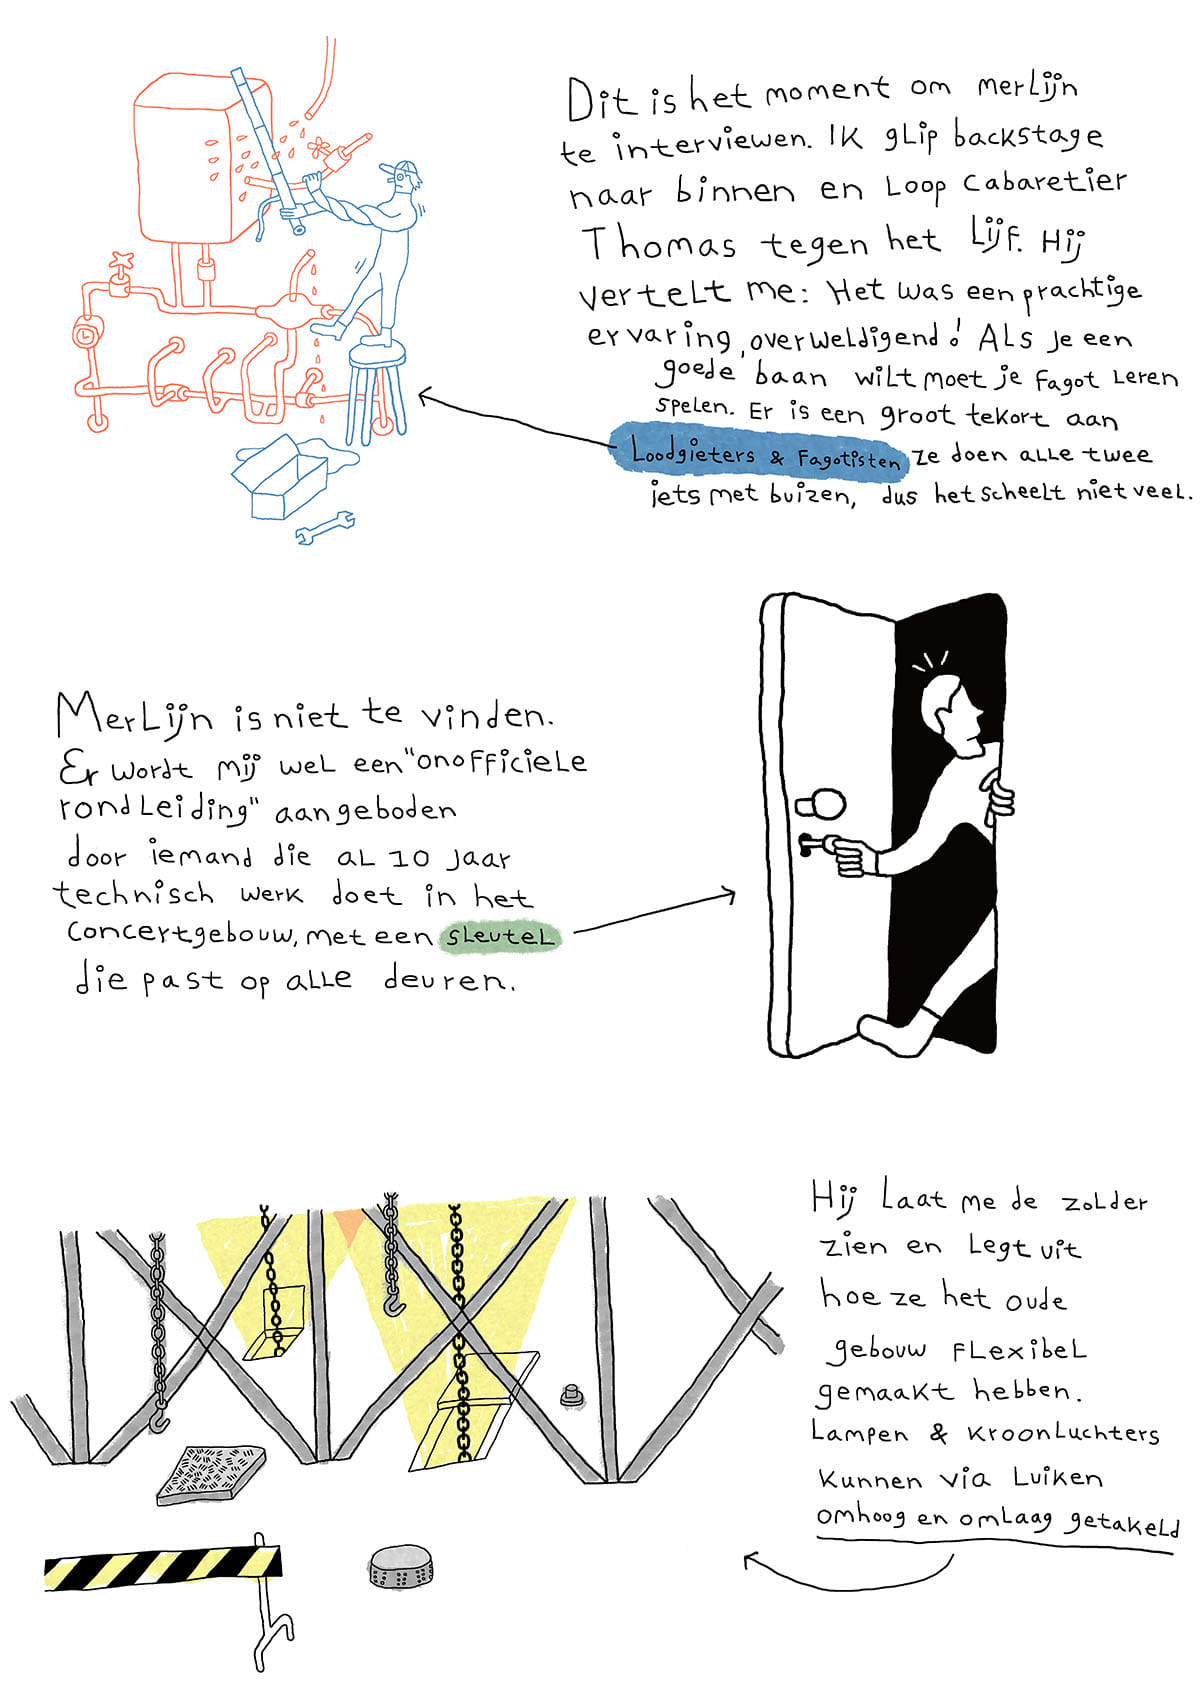 Dit is het moment om merlijn
te interviewen. Ik glip backstage
naar binnen en loop cabaretier
Thomas tegen het lijf. Hij
vertelt me: Het was een prachtige
ervaring, overweldigend! Als je een
goede baan wilt moet je fagot leren
spelen. Er is een groot tekort aan
Loodgieters & Fagotisten ze doen alle twee
iets met buizen, dus het scheelt niet veel.
Merlijn is niet te vinden.
Er wordt mij wel een "onofficiele
rondleiding" aangeboden
door iemand die al 10 jaar
technisch werk doet in het
concertgebouw, met een sleutel
die past op alle deuren.
Hij laat me de zolder
zien en legt uit
hoe ze het oude
gebouw flexibel
gemaakt hebben.
Lampen & kroonluchters
kunnen via luiken
omhoog en omlaag getakeld